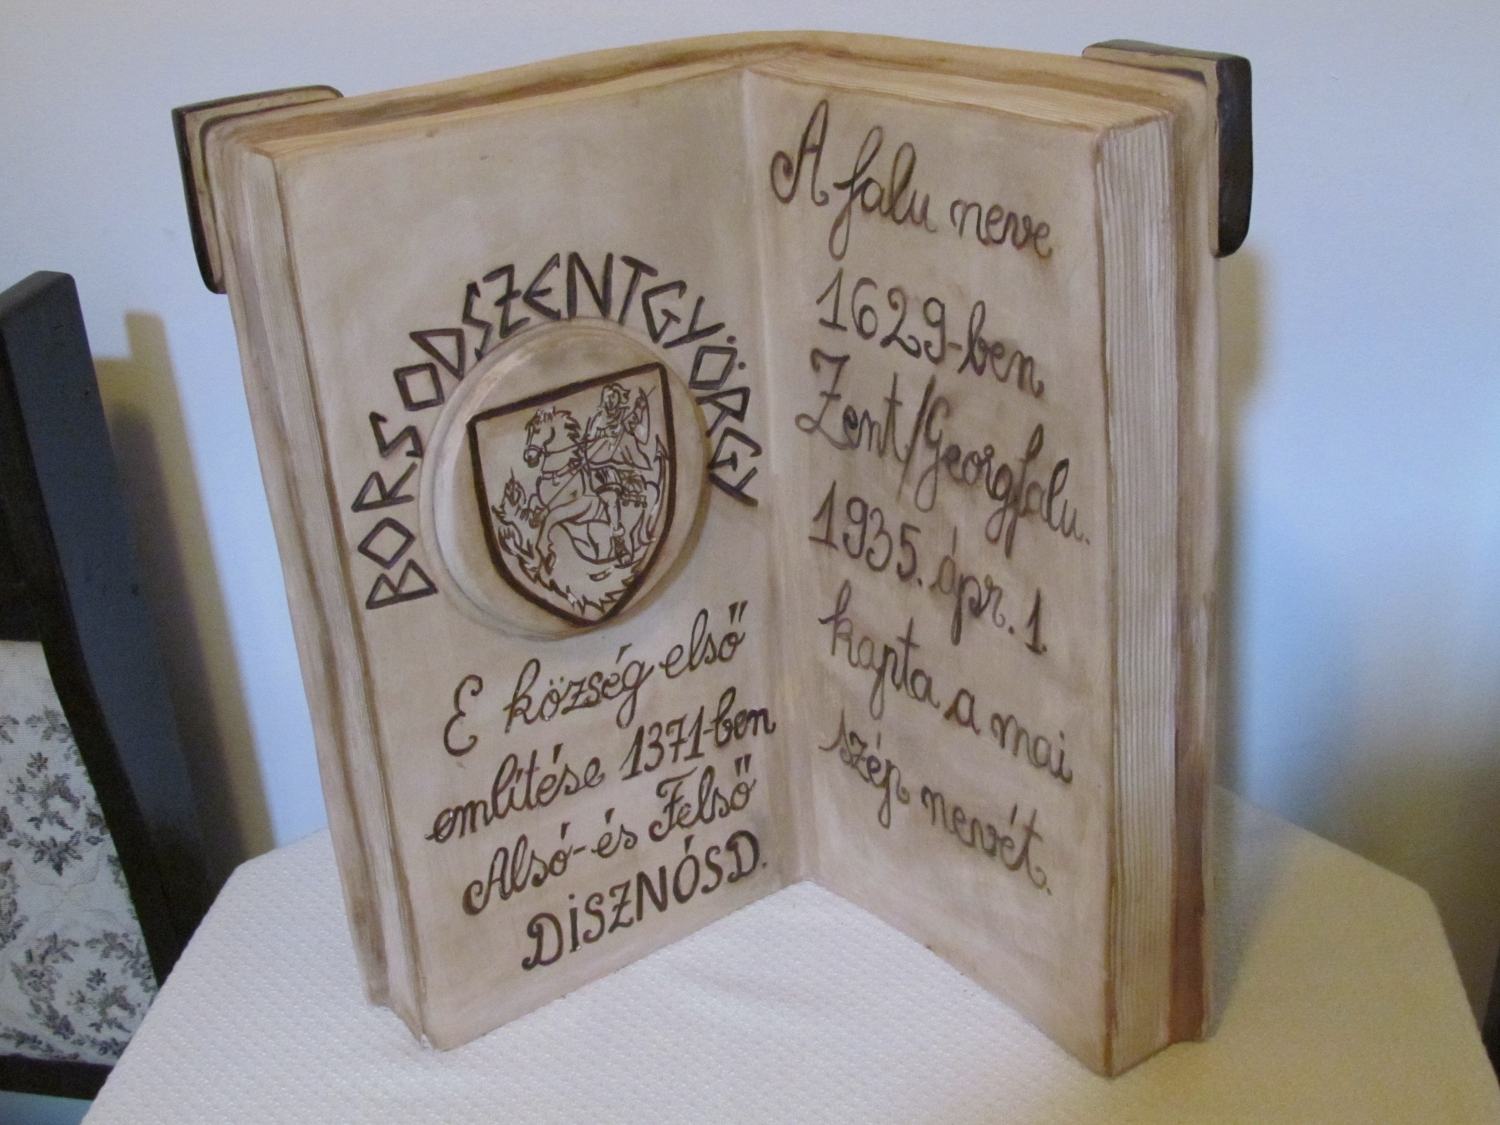 BORSODSZENTGYÖRGY
E község első
emlitése 1371-ben
Alsó-és Felső
DISZNÓSD.
A falu neve
1629-ben
Zent/Georgfalu.
1935. ápr. 1.
kapta a mai
szép nevét.